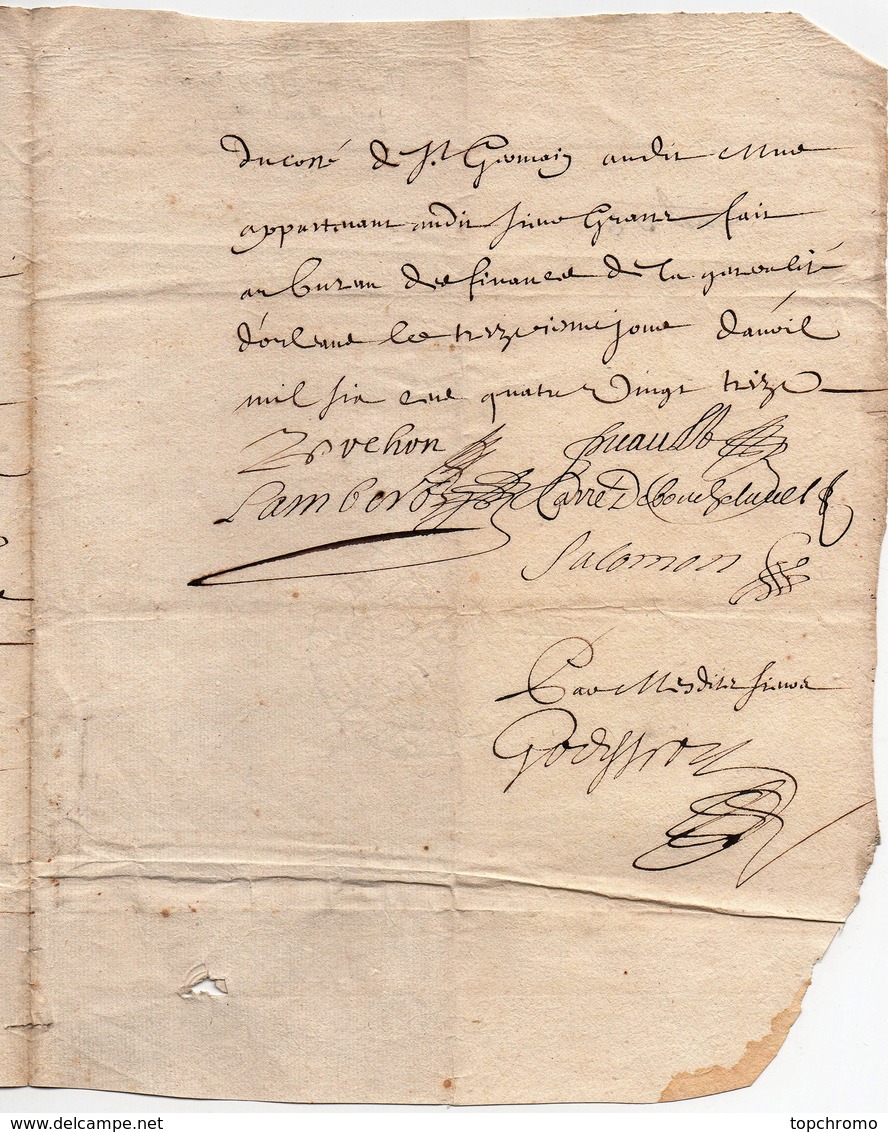 du costé de St Germain audit
appartenant audit sieur fait
au bureau des finances de la generalité
d'orleans le treizeiesme jour d'avril
mil six cens quatre vingt treize
Lambert Carré De bouchetault
Salomon
Par Mesdits sieurs
www.delcampe.net topchromo